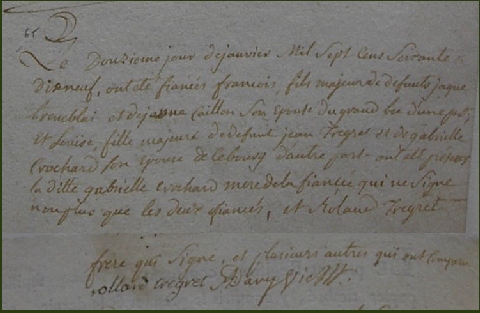 Le Douzieme jour dejanvier Mil Sept Cens Soixante
Dixneuf, ont été fiancés francois, fils majeur de defunts jaque
tremblai et dejanne Caillon Son Epouse du grand bue d'une part,
et Louise, fille majeure de defunt jean Tregret et de gabrielle
Crochard Son Epouse de le bourg d'autre part - ont été présens
la ditte gabrielle Crochard mere de la fiancée qui ne Signe
non plus que les deux fiancés, et Roland Tregret
frere qui Signe, et plusieurs autres qui ont Comparu
rolland tregret